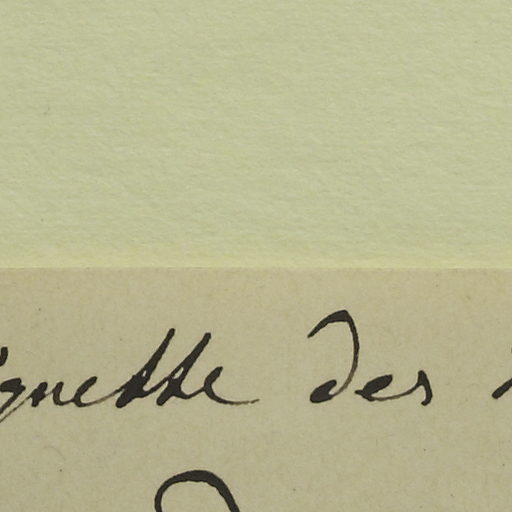 ignette des